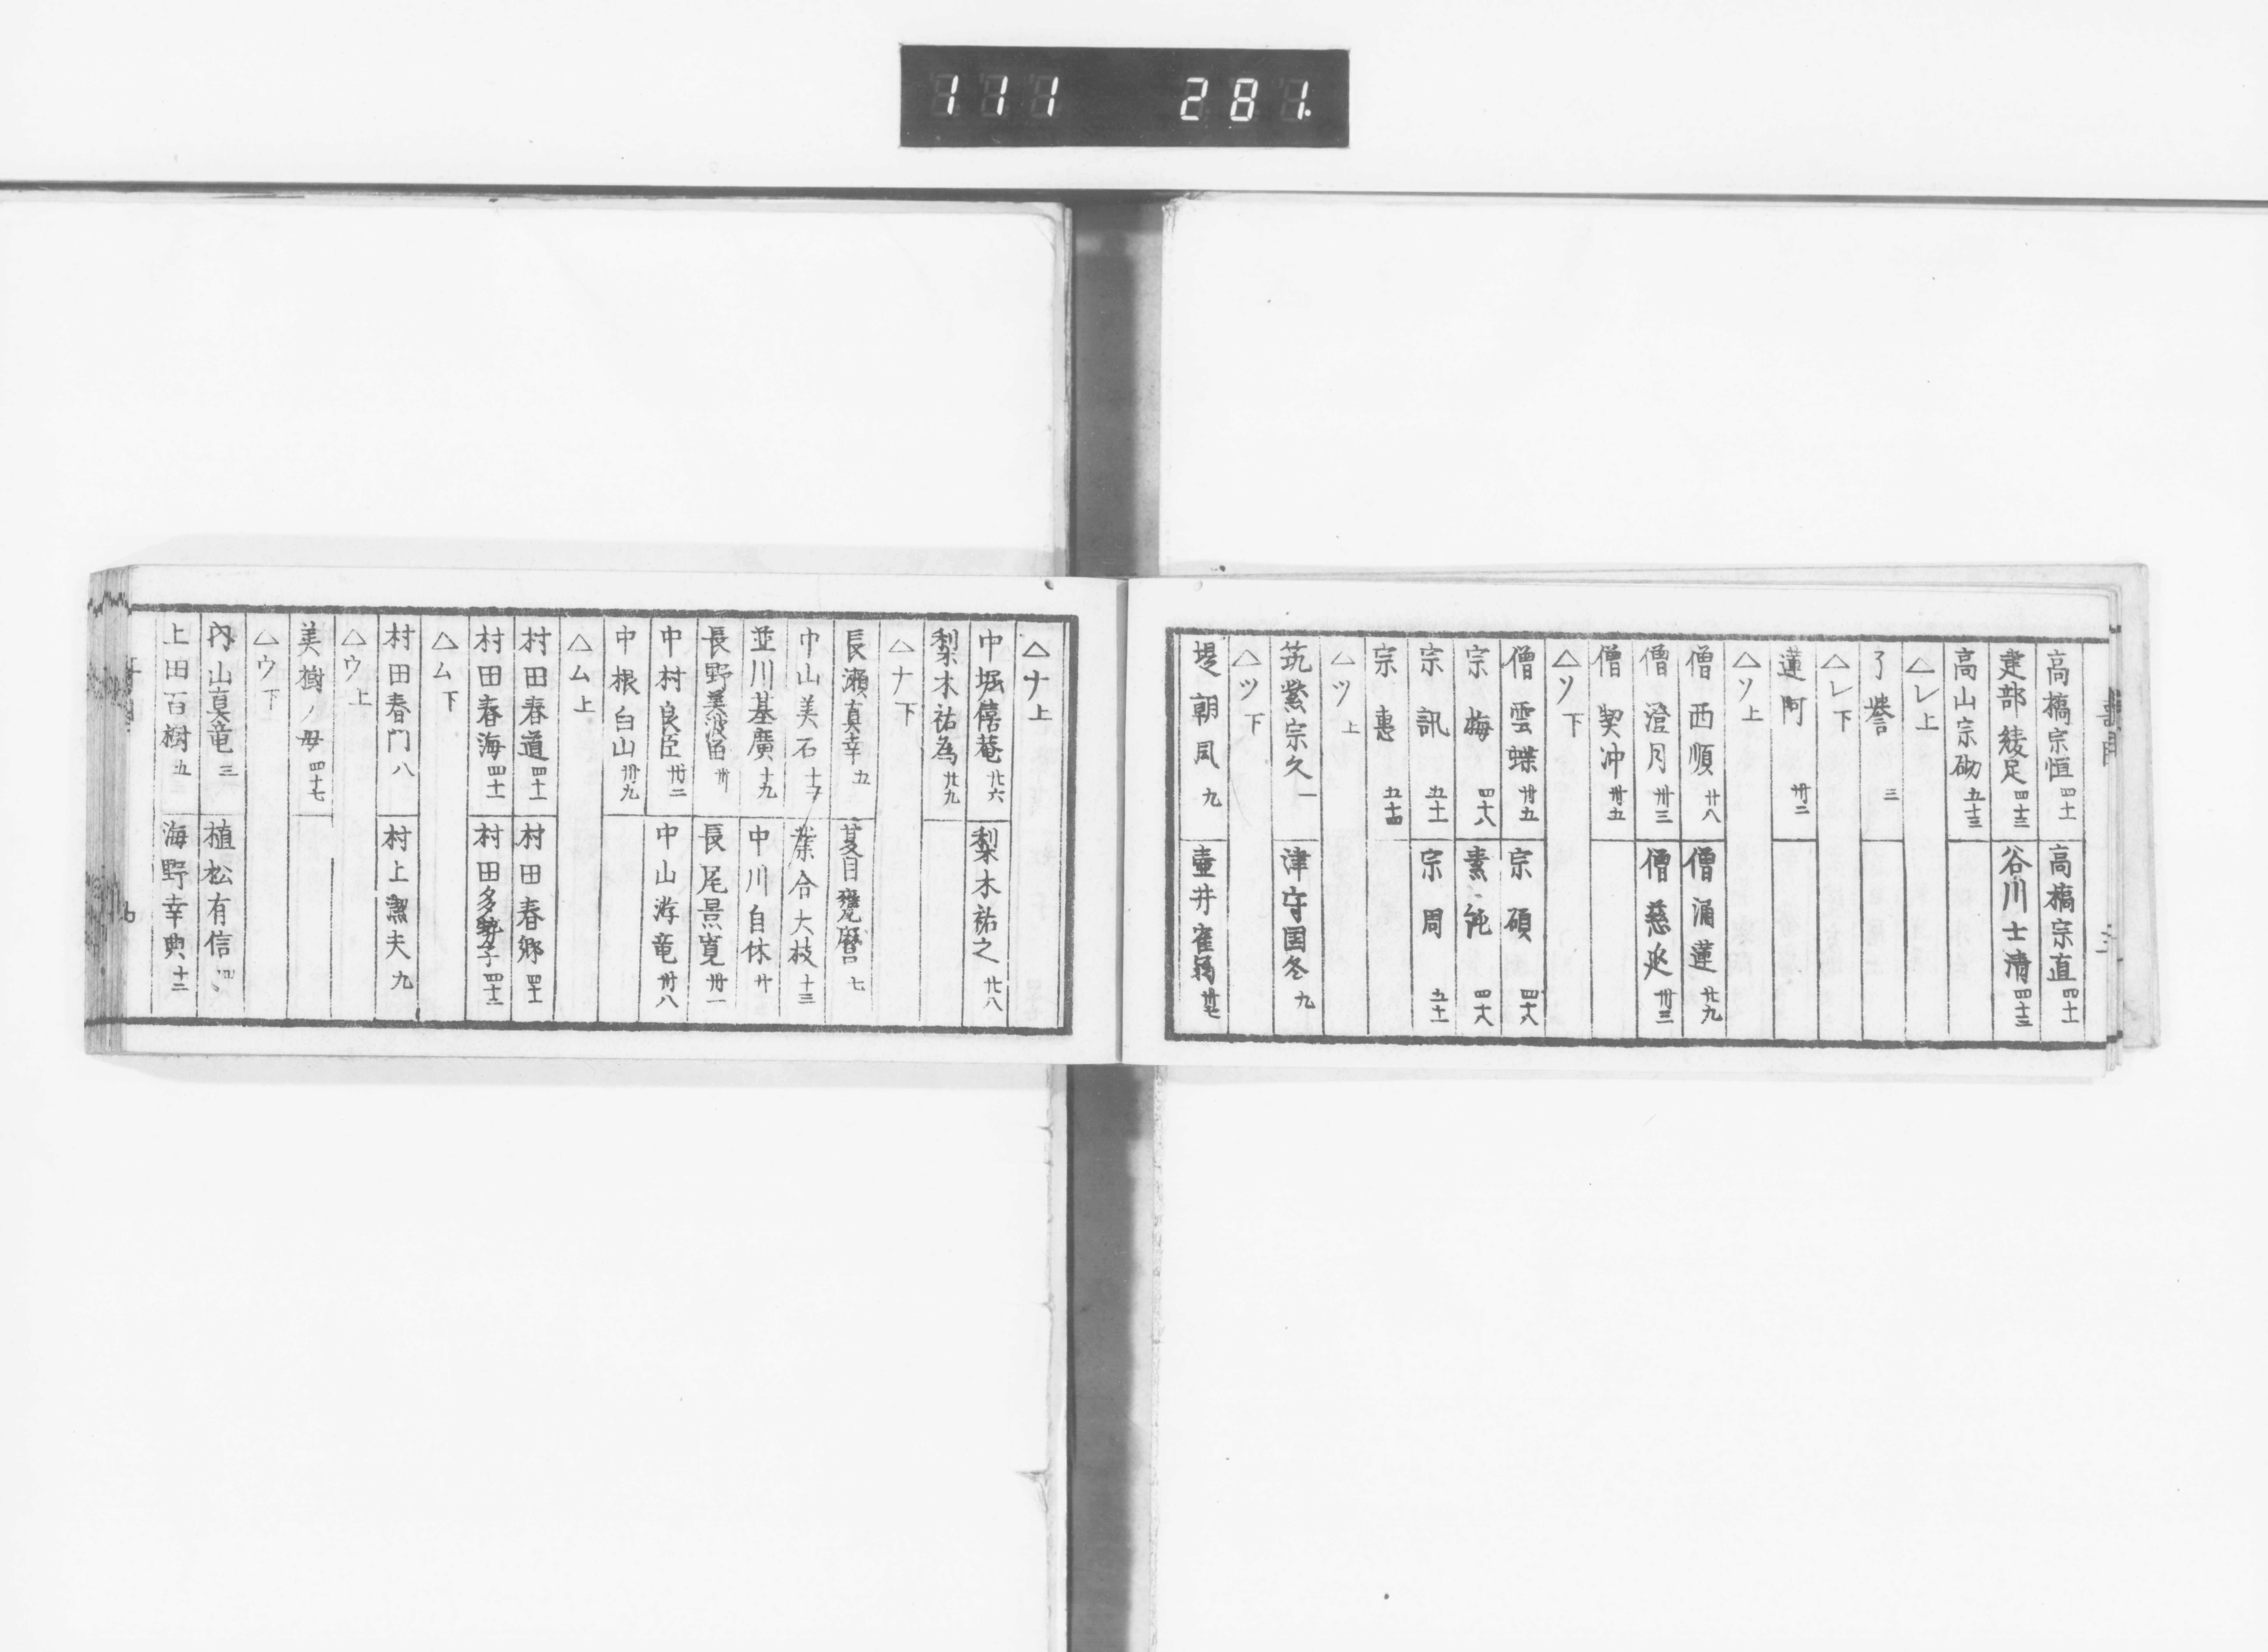 111 281.
高橋宗恒 四十一
高橋宗直 四十一
建部綾足 四十三
谷川士清 四十三
高山宗砌 五十三
△レ上
了誉 三
△レ下
蓮阿 卅二
△ソ上
僧西順 廿八
僧涌蓮 廿九
僧澄月 卅三
僧慈延 卅三
僧契沖 卅五
△ソ下
僧雲蝶 卅五
宗碩 四十八
宗梅 四十八
素純 四十八
宗訊 五十一
宗周 五十一
宗惠 五十四
△ツ上
筑紫宗久 一
津守国冬 九
△ツ下
堤朝風 九
壷井崔翁
△ナ上
中堀僖菴 廿六
梨木祐之 廿八
梨木祐為 廿九
△ナ下
長瀬真幸 五
夏目甕麿 七
中山美石
葉合大枝 十三
並川基廣 十九
中川自休 廿
長野美波留 卅
長尾景寛 卅一
中村良臣 卅二
中山游竜 卅八
中根白山 卅九
△ム上
村田春道 四十一
村田春郷 四十一
村田春海 四十一
村田多勢子 四十三
△ム下
村田春門 八
村上潔夫 九
△ウ上
美樹ノ母 四十七
△ウ下
内山真竜 三
植松有信
上田百樹 五
海野幸典 十二